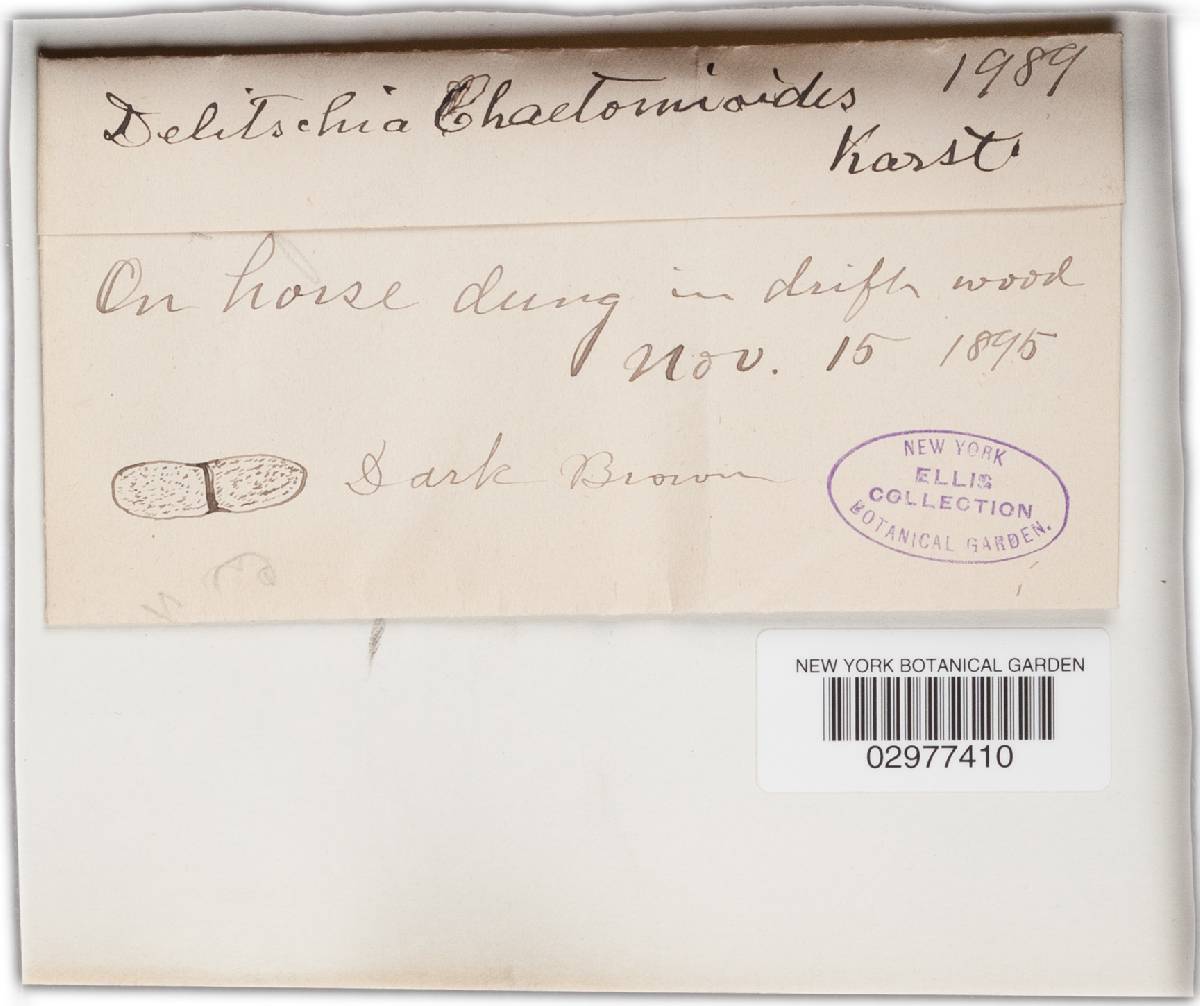 1989
Delitschia Chaetomioides
Karst
On horse dung in drift wood
Nov. 15 1895
Dark Brown
NEW YORK
ELLIS
COLLECTION
BOTANICAL GARDEN.
NEW YORK BOTANICAL GARDEN
02977410